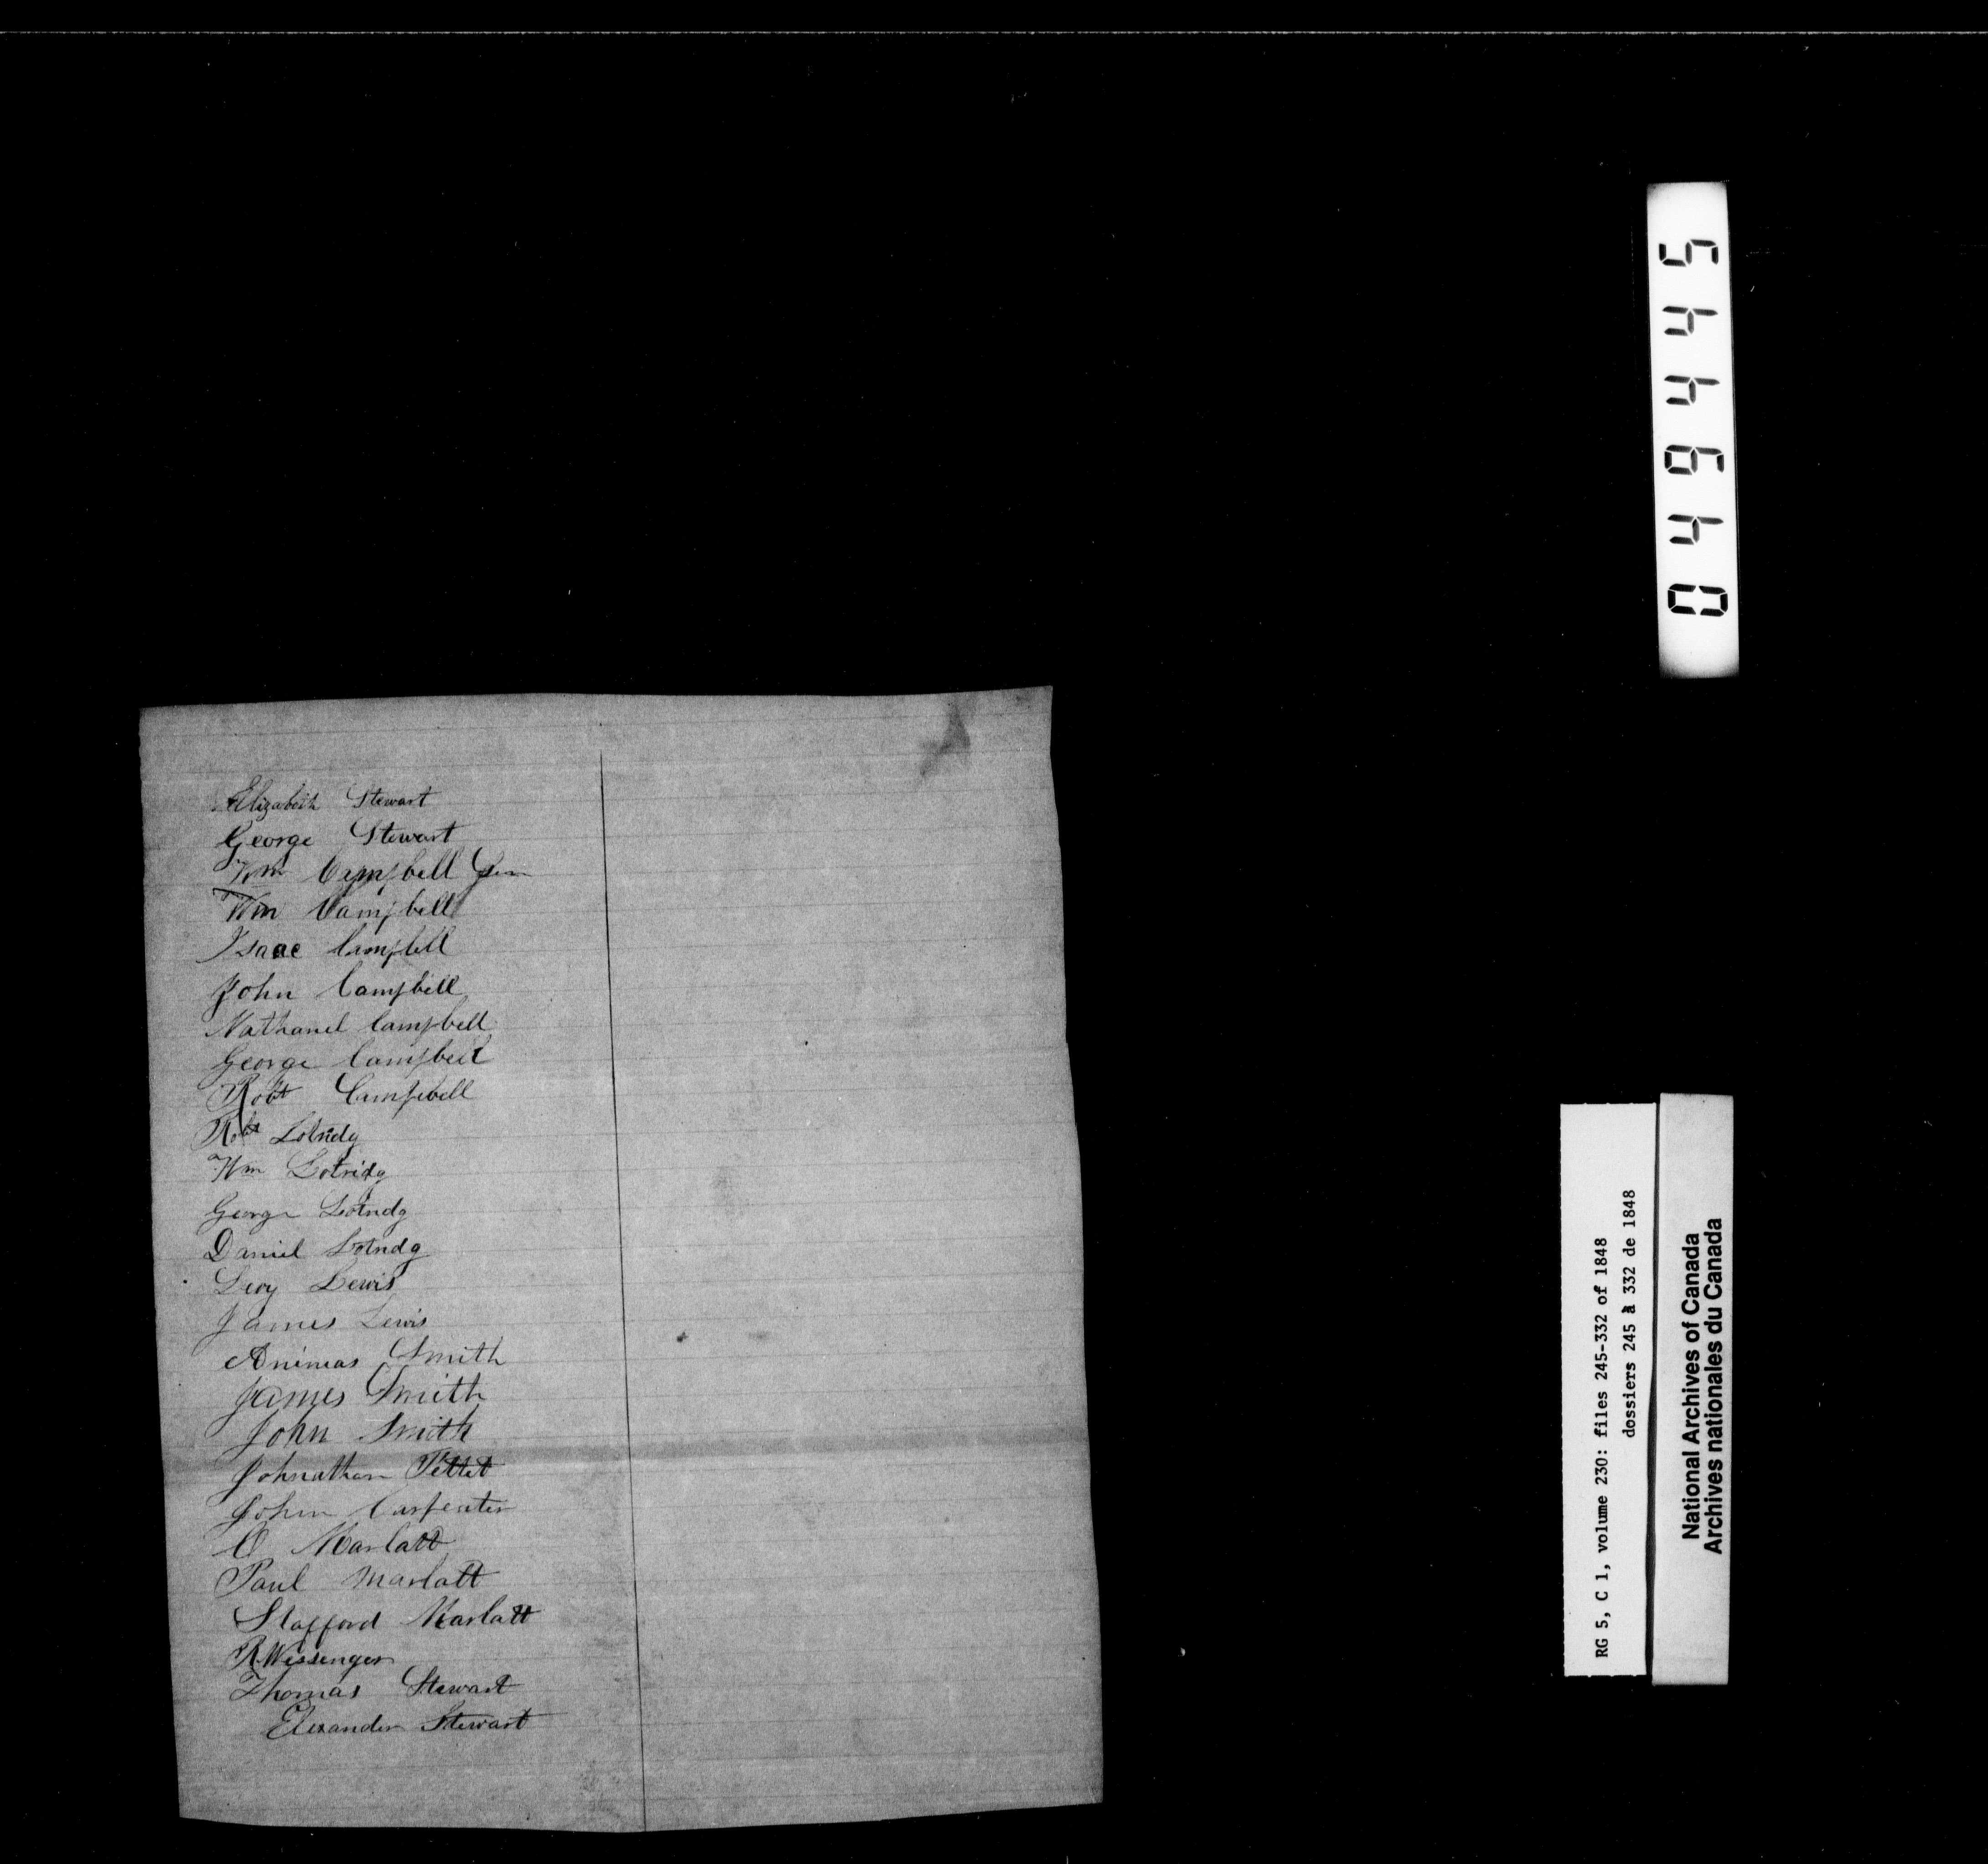 Elizabeth Stewart
George Stewart
Wm Campbell Sen
Wm Campbell
Isaac Campbell
John Campbell
Nathanel Campbell
George Campbell
Robt Campbell
Robt Lotridg
Wm Lotridg
George Lotridg
Daniel Lotridg
Levy Lewis
James Lewis
Ananias Smith
James Smith
John Smith
Johnathan Pettet
John Carpenter
Marlatt
Paul Marlatt
Stafford Marlatt
Thomas Stewart
Elexander Stewart
044645
RG 5, C 1, volume 230: files 245-332 of 1848
dossiers 245 à 332 de 1848
National Archives of Canada
Archives nationales du Canada